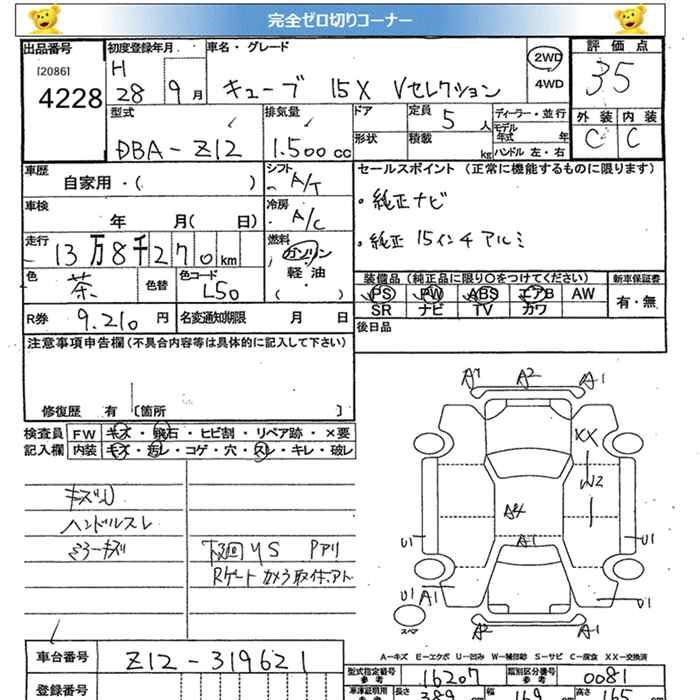 完全ゼロ切りコーナー
出品番号 初度登録年月 車名・グレード 評価点
[2086] H 2WD 35
4228 28 9月 キューブ 15X Vセレクション 4WD
型式 排気量 ドア 定員 5人 ディーラー・並行 外装 内装
モデル年式 年
DBA-Z12 1.500cc 形状 積載 kg ハンドル 左・右 C C
車歴 シフト セールスポイント (正常に機能するものに限ります)
自家用・( ) A/T ・純正ナビ
車検 冷房
年 月( 日) A/C
走行 燃料 ・純正 15インチアルミ
13万8千270km ガソリン
軽・油
色 茶 色替 色コード L50 ( )
装備品 (純正品に限り○をつけてください) 新車保証書
PS PW ABS エアB AW 有・無
SR ナビ TV カワ
R券 9.210円 名変通知期限 月 日 後日品
注意事項申告欄 (不具合内容等は具体的に記入して下さい)
修復歴 有 〔箇所 〕
検査員 FW キズ・飛石・ヒビ割・リペア跡・×要
記入欄 内装 キズ・汚レ・コゲ・穴・スレ・キレ・破レ
ハンドルスレ
ミラーキズ
下廻りS Pアリ
Rゲート カメラ取付アト
A1 A2 A1
XX
W2
A4
U1 U1
A1
U1 A1 U1
スペア
A2 A1
A-キズ E-エクボ U-凹み W-補修跡 S-サビ C-腐食 XX-交換済
車台番号 Z12-319621 型式指定番号 参考 16207 類別区分番号 参考 0081
登録番号 長さ 389 幅 169 高さ 165